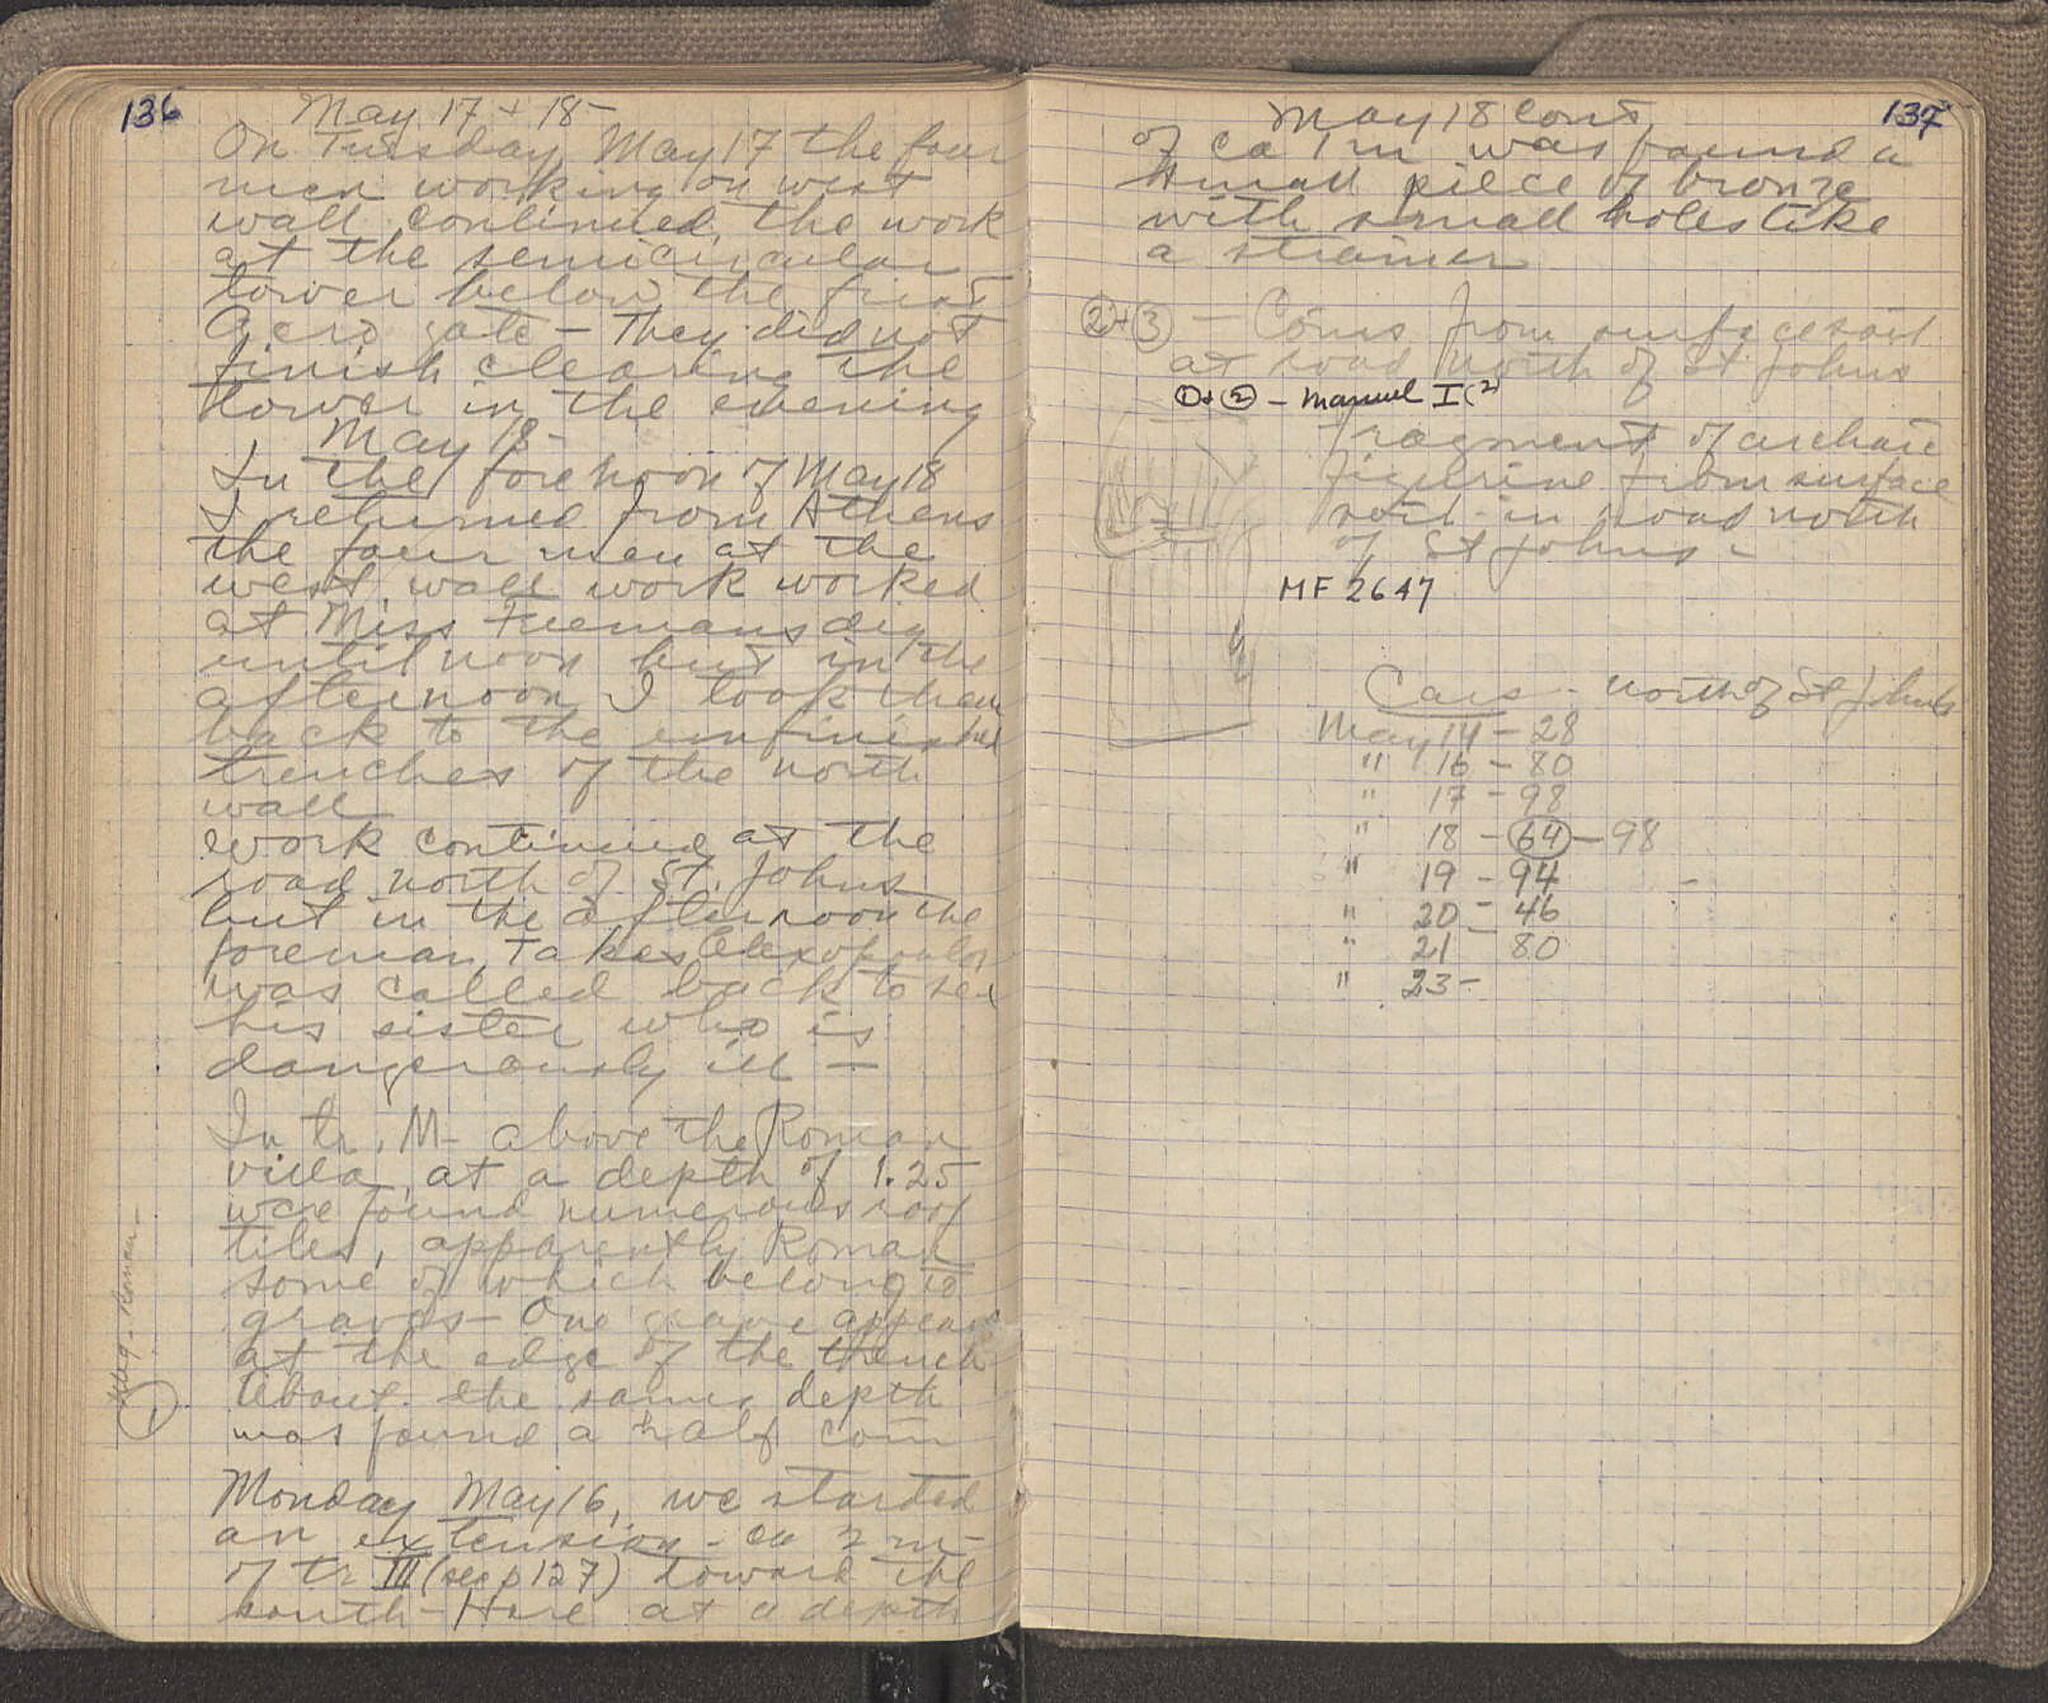 136
May 17 + 18 -
On Tuesday May 17 the four
men working on west
wall continued the work
at the semicircular
tower below the first
Acro gate - They did not
finish clearing the
tower in the evening
May 18 -
In the forenoon of May 18
I returned from Athens
the four men at the
west wall work worked
at Miss Freemans dig
until noon but in the
afternoon I took them
back to the unfinished
trenches of the north
wall
work continued at the
road north of St. Johns
but in the afternoon the
foreman, Takes Alexopoulos
was called back to see
his sister who is
dangerously ill -
In tr. M - above the Roman
villa, at a depth of 1.25
were found numerous roof
tiles, apparently Roman
some of which belong to
graves - One grave appears
at the edge of the trench
About the same depth
was found a half coin
1
Roman -
Monday May 16, we started
an extension - ca 2 m -
of tr III (see p 127) toward the
south - Here at a depth
137
May 18 Cont
of ca 1 m was found a
small piece of bronze
with small holes like
a strainer
2 + 3 - Coins from surface soil
at road north of St Johns
1 + 2 - Manuel I (2)
Fragment of archaic
figurine from surface
soil in road north
of St Johns -
MF 2647
Cars - North of St Johns
May 14 - 28
" 16 - 80
" 17 - 98
" 18 - 64 - 98
" 19 - 94 -
" 20 - 46
" 21 - 80
" 23 -